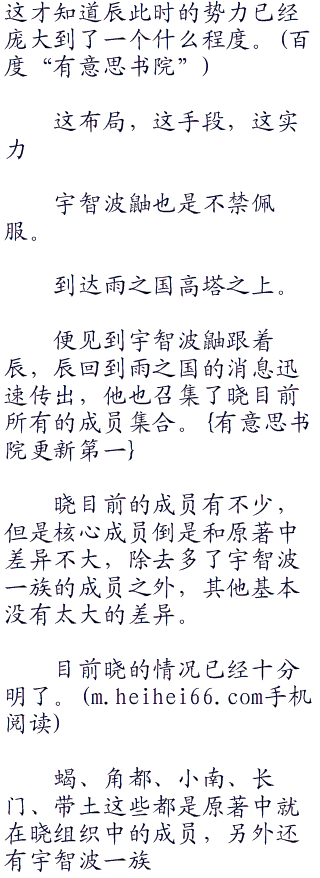 这才知道辰此时的势力已经
庞大到了一个什么程度。(百
度“有意思书院”)
这布局，这手段，这实
力
宇智波鼬也是不禁佩
服。
到达雨之国高塔之上。
便见到宇智波鼬跟着
辰，辰回到雨之国的消息迅
速传出，他也召集了晓目前
所有的成员集合。{有意思书
院更新第一}
晓目前的成员有不少，
但是核心成员倒是和原著中
差异不大，除去多了宇智波
一族的成员之外，其他基本
没有太大的差异。
目前晓的情况已经十分
明了。(m.heihei66.com手机
阅读)
蝎、角都、小南、长
门、带土这些都是原著中就
在晓组织中的成员，另外还
有宇智波一族